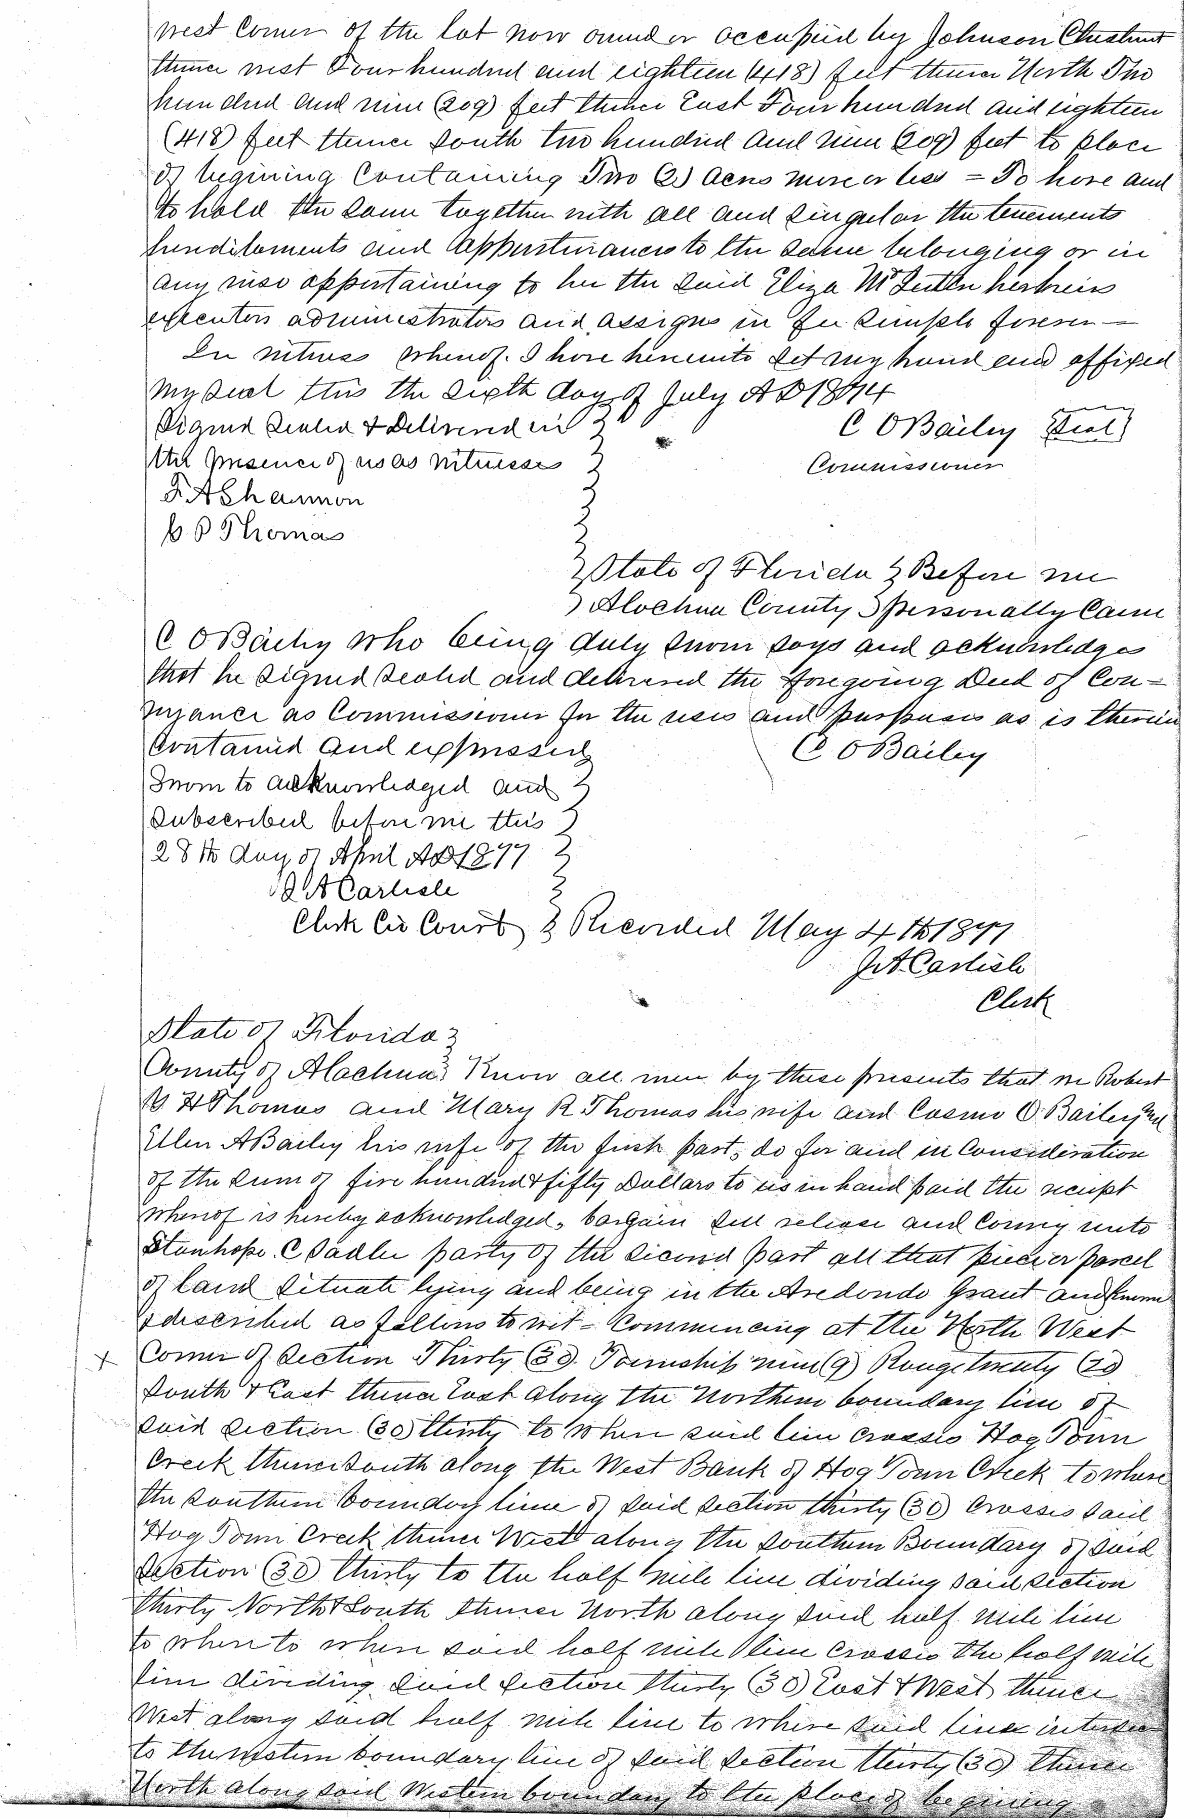 west Corner of the lot now owned or occupied by Johnson Chestnut
thence west Four hundred and eighteen (418) feet thence North Two
hundred and nine (209) feet thence East Four hundred and eighteen
(418) feet thence South two hundred and nine (209) feet to place
of begining Containing Two (2) acres more or less = To have and
to hold the same together with all and singular the tenements
hereditaments and appurtenances to the same belonging or in
any wise appertaining to her the said Eliza her heirs
executors administrators and assigns in fee simple forever —
In witness whereof I have hereunto set my hand and affixed
my seal this the sixth day of July AD 1874
Signed Sealed & Delivered in
C O Bailey Seal
the presence of us as witnesses
Commissioner
F A Shannon
C P Thomas
State of Florida } Before me
Alachua County } personally Came
C O Bailey who being duly sworn says and acknowledges
that he signed sealed and delivered the foregoing Deed of Con=
veyance as Commissioner for the uses and purposes as is therein
Contained and expressed
C O Bailey
Sworn to acknowledged and
Subscribed before me this
28th day of April AD 1877
J A Carlisle
Clerk Cir Court } Recorded May 4th 1877
J A Carlisle
Clerk
State of Florida }
County of Alachua } Know all men by these presents that we Robert
Y H Thomas and Mary R Thomas his wife and Cosmo O Bailey and
Ellen A Bailey his wife of the first part, do for and in Consideration
of the sum of five hundred & fifty Dollars to us in hand paid the receipt
whereof is hereby acknowledged, bargain sell release and convey unto
Stanhope C Sadler party of the second part all that piece or parcel
of land situate lying and being in the Aredondo Grant and known
& described as follows to wit = Commencing at the North West
Corner of Section Thirty (30) Township nine (9) Range twenty (20)
South & East thence East along the Northern boundary line of
said section (30) thirty to where said line crosses Hog Town
Creek thence South along the West Bank of Hog Town Creek to where
the southern boundary line of said section thirty (30) crosses said
Hog Town Creek thence West along the southern Boundary of said
section (30) thirty to the half mile line dividing said section
thirty North & South thence North along said half mile line
to where to where said half mile line crosses the half mile
line dividing said section thirty (30) East & West thence
West along said half mile line to where said line
to the western boundary line of said section thirty (30) thence
North along said Western boundary to the place of begining